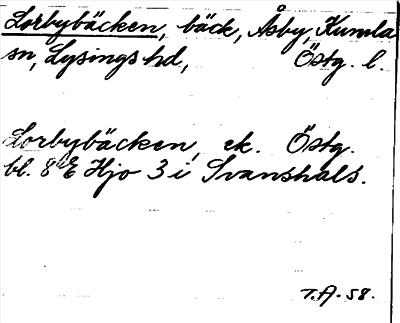 Lorbybäcken, bäck, Åsby, Kumla
sn, Lysings hd, Östg. l.
Lorbybäcken, ek. Östg.
bl. 8 E Hjo 3 i Svanshals.
T.A. 58.